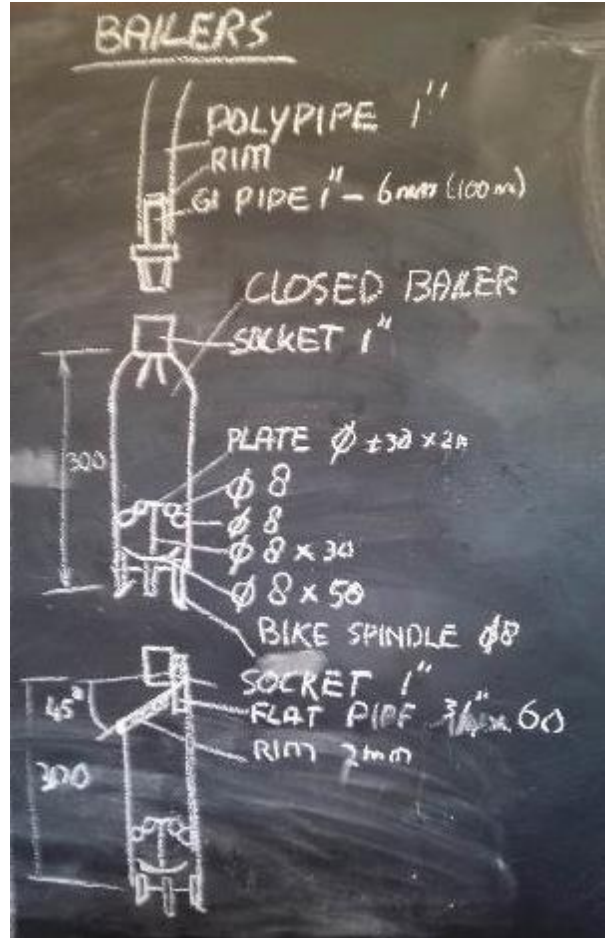 BAILERS
POLYPIPE 1"
RIM
GI PIPE 1" - 6mm (100m)
CLOSED BAILER
SOCKET 1"
300
PLATE φ ±30 x 2
φ 8
φ 8
φ 8 x 30
φ 8 x 50
BIKE SPINDLE φ8
SOCKET 1"
45°
FLAT PIPE 60
RIM 2mm
300